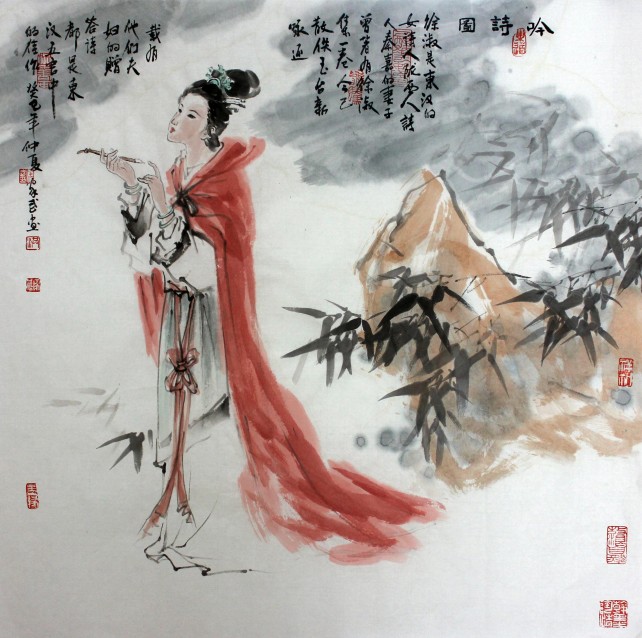 吟詩圖
徐淑是東汉的
女诗人陇西人詩
人秦嘉的妻子
曾著有徐淑
集一卷今已
散佚玉台新
咏还
載有
他们夫
妇的贈
答诗
都是東
汉五言中
的佳作癸巳年仲夏画